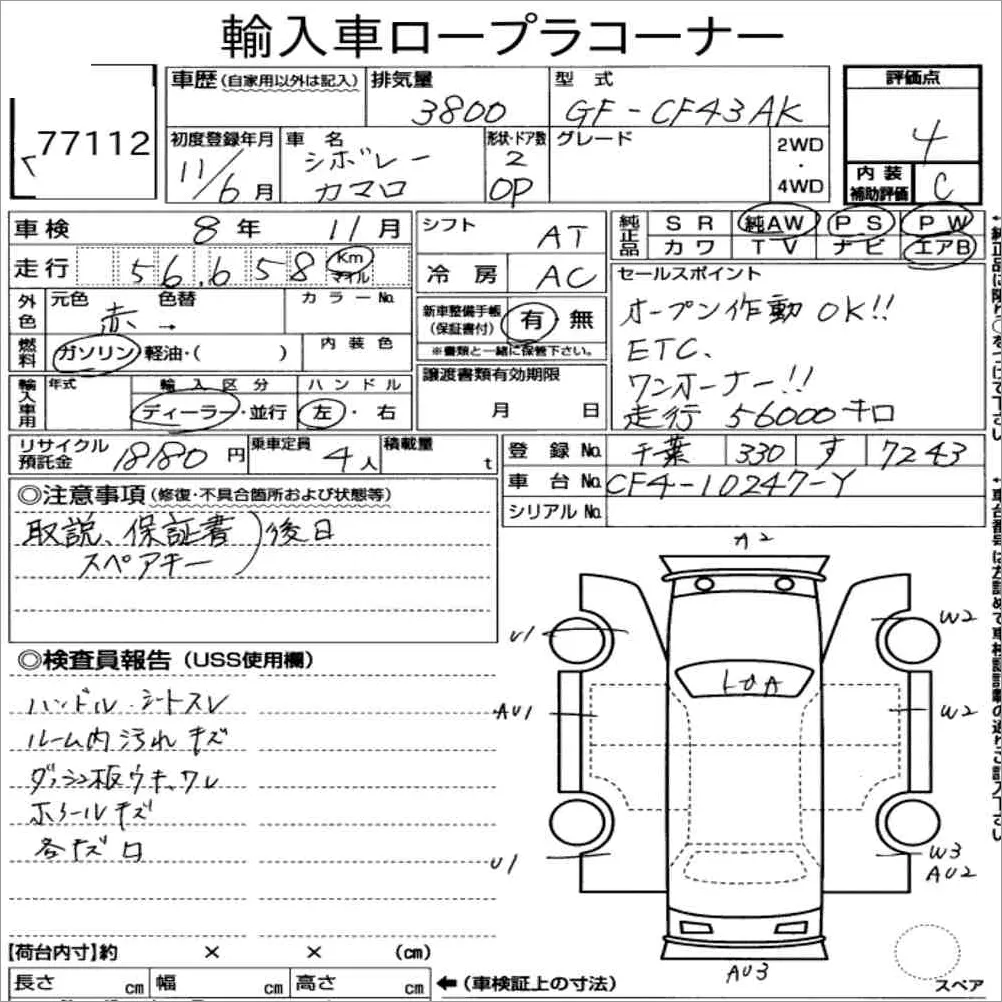 輸入車ロープラコーナー
77112
車歴(自家用以外は記入) 排気量 3800 型式 GF-CF43AK
評価点 4
内装補助評価 C
初度登録年月 11/6月 車名 シボレー カマロ 形状・ドア数 2 OP グレード 2WD・4WD
車検 8年 11月
走行 56,658 Km マイル
シフト AT
冷房 AC
純正品 SR 純AW PS PW
カワ TV ナビ エアB
セールスポイント
オープン作動OK!!
ETC、
ワンオーナー!!
走行 56000キロ
外色 元色 赤 → 色替 カラーNo.
燃料 ガソリン・軽油・( ) 内装色
新車整備手帳(保証書付) 有 無
※書類と一緒に保管下さい。
輸入車用 年式 輸入区分 ディーラー・並行 ハンドル 左・右
譲渡書類有効期限
月 日
リサイクル預託金 18180円 乗車定員 4人 積載量 t
登録No. 千葉 330 す 7243
車台No. CF4-10247-Y
シリアルNo.
◎注意事項(修復・不具合箇所および状態等)
取説、保証書 後日
スペアキー
◎検査員報告(USS使用欄)
ハンドル・シートスレ
ルーム内汚れキズ
ダッシュ板ウキ、ワレ
ホイールキズ
各キズ凹
A2
U1
W2
AU1
W2
U1
W3
AU2
AU3
スペア
【荷台内寸】約 × × (cm)
長さ cm 幅 cm 高さ cm ←(車検証上の寸法)